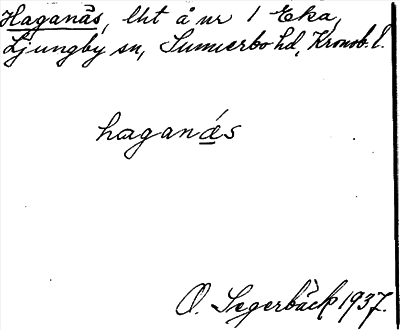 Haganäs, lht å nr 1 Eka,
Ljungby sn, Sunnerbo hd, Kronob. l.
haganá̲s
O. Segerbäck 1937.